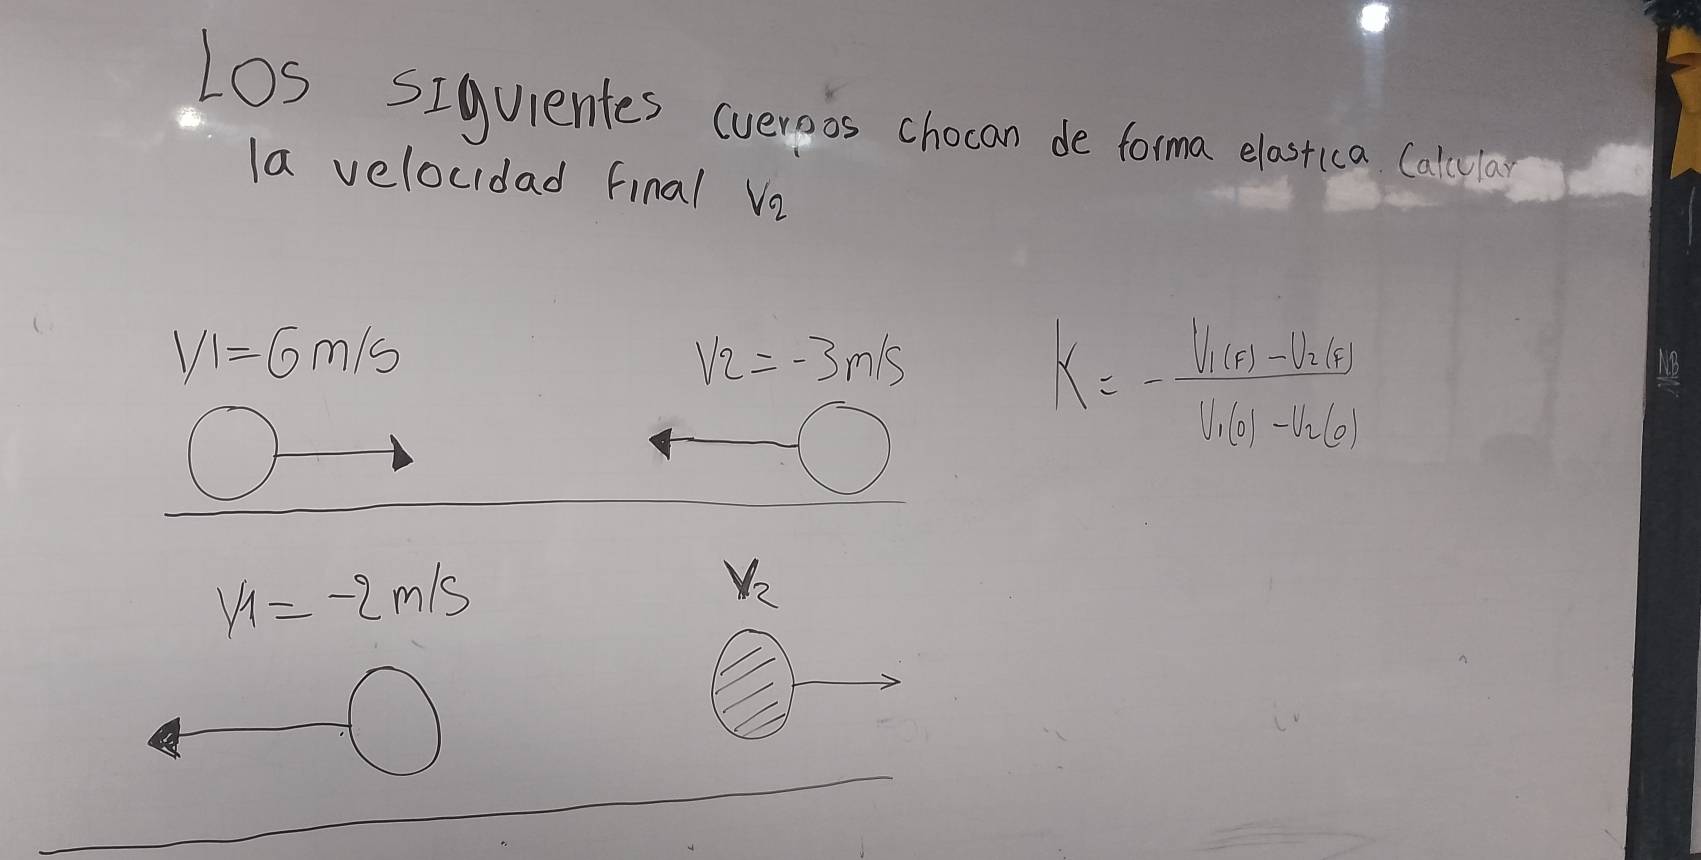 Los siguientes cuerpos chocan de forma elastica. Calcular
la velocidad final V2
V1=6m/s
V2=-3m/s
K = - V1(F) - V2(F) / V1(0) - V2(0)
V1=-2m/s
V2
NB